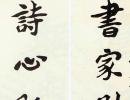 書家
詩心